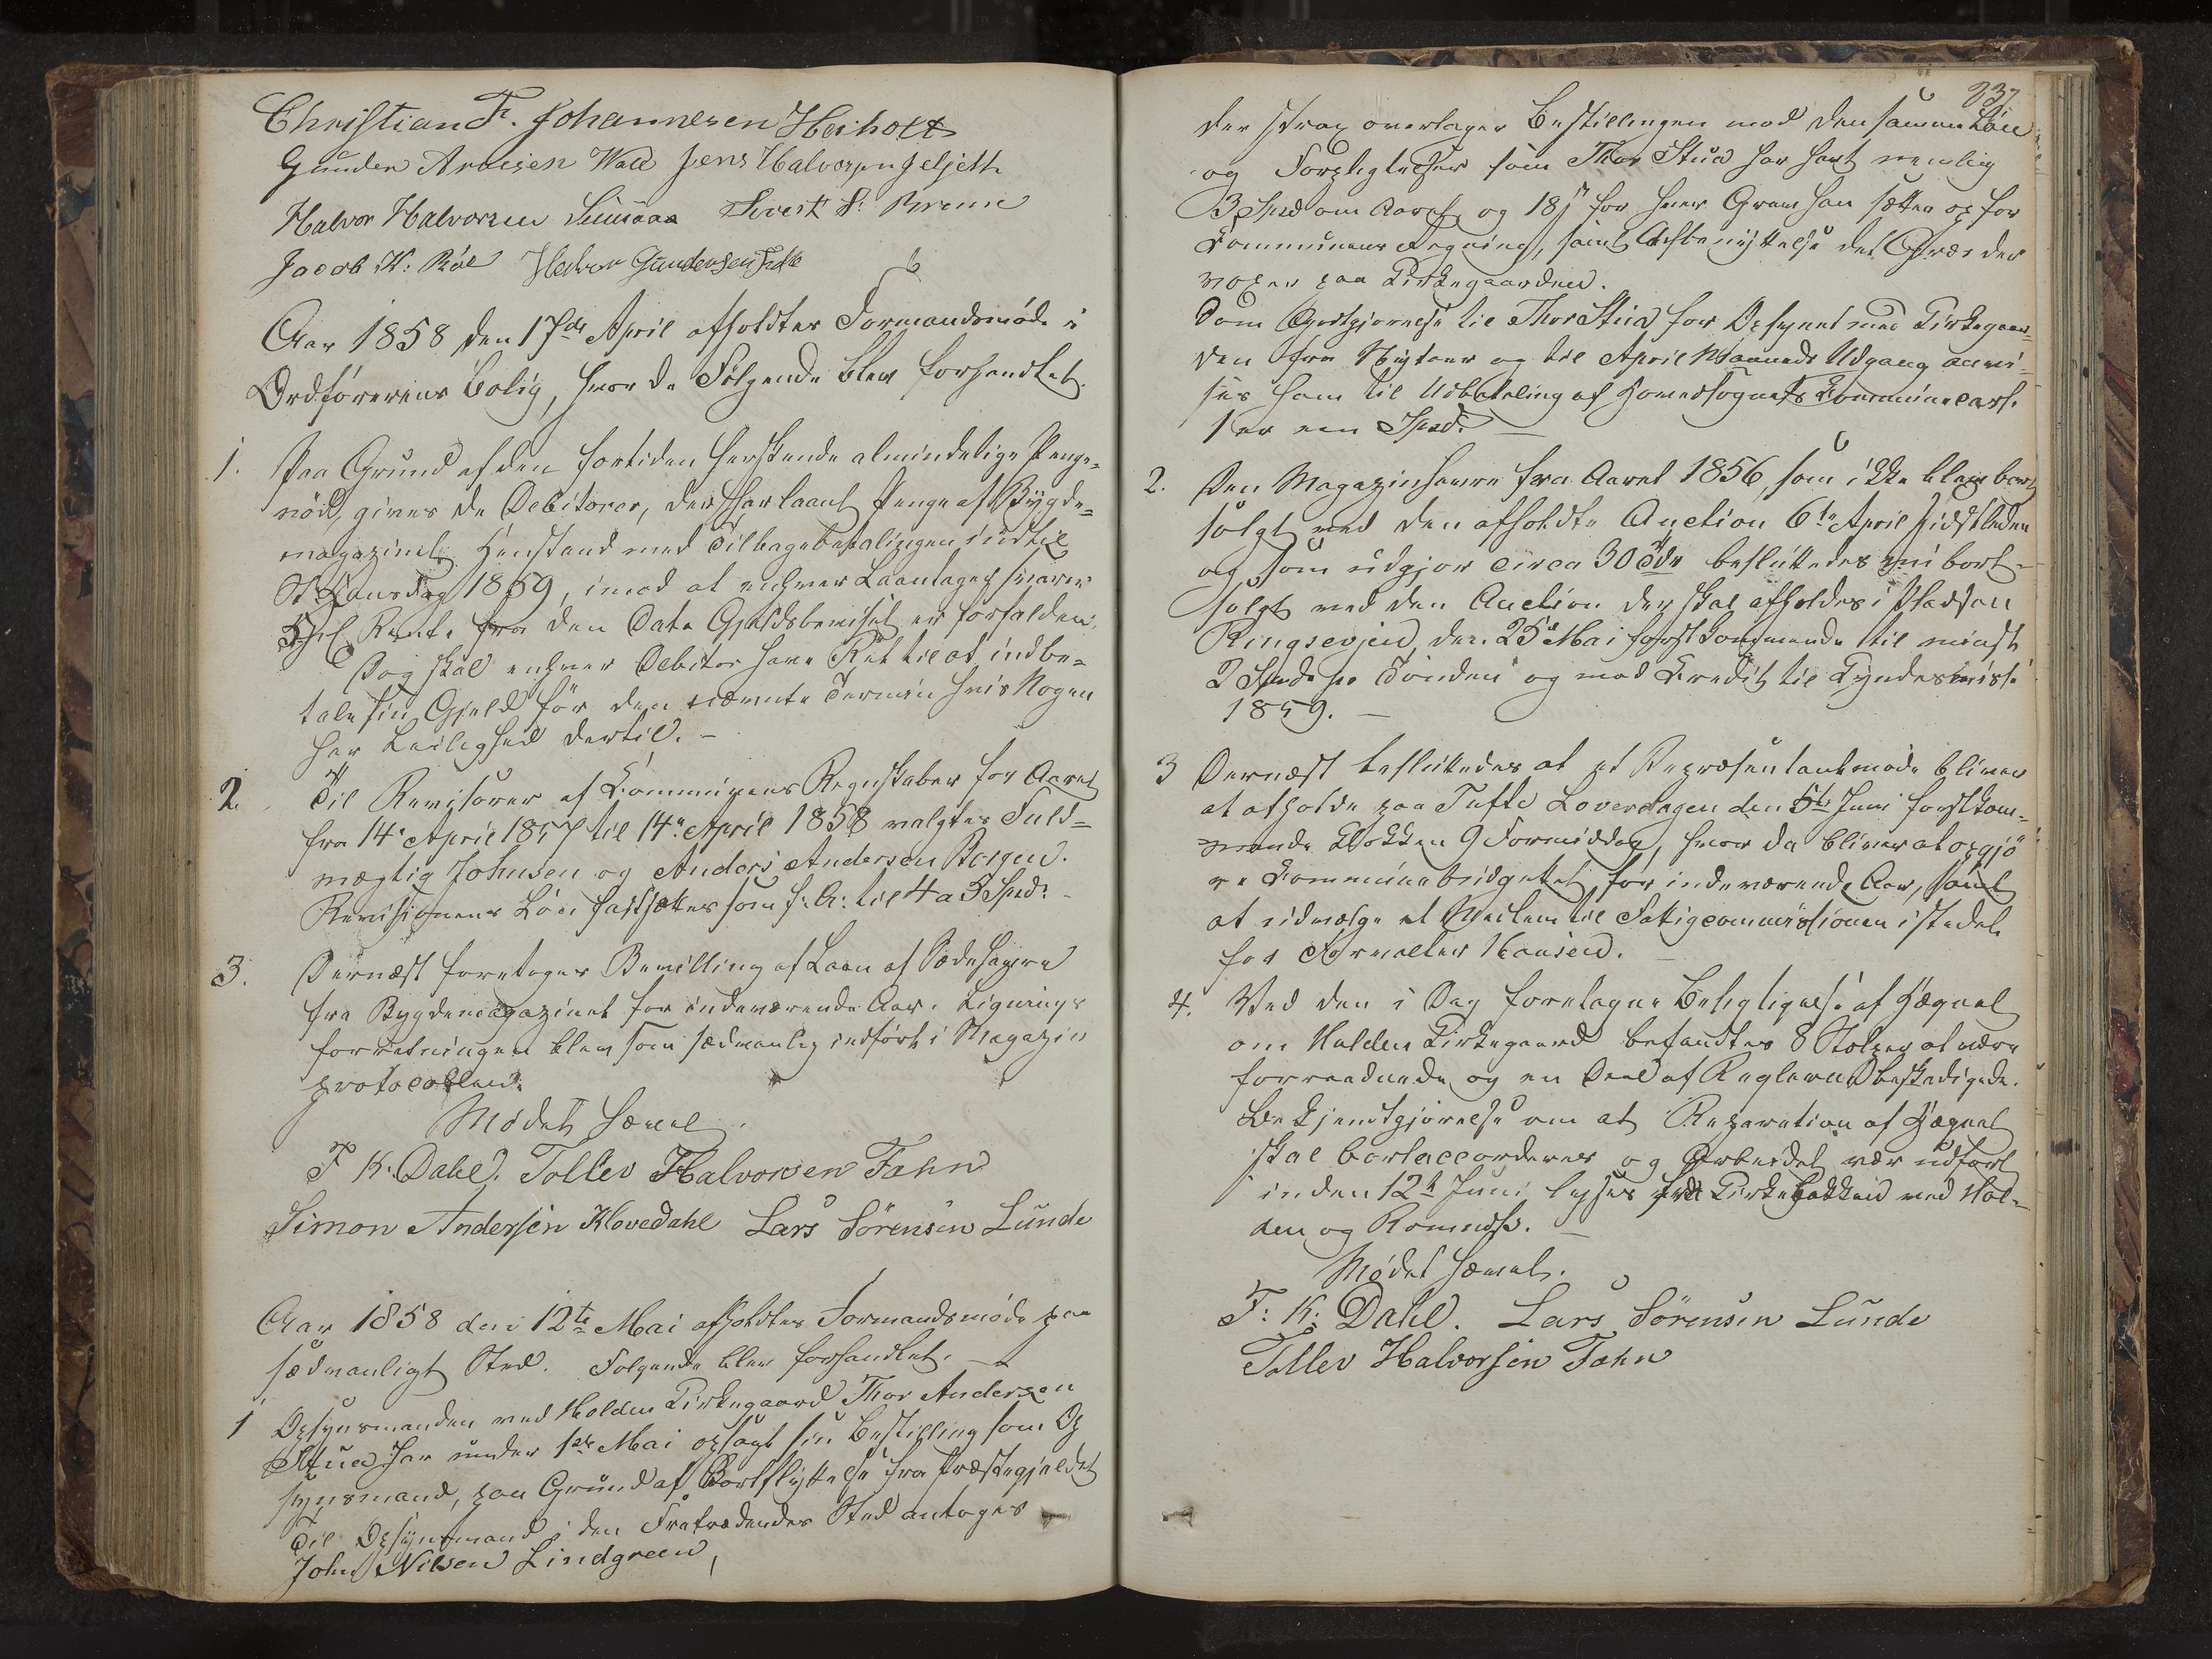 Christian F. Johannesen Heiholt
Gunder Aroesen Wala Jens Halvorsen
Halvor Halvorsen Sivert S:
Jacob K: Halvor Gundersen
Aar 1858 den 17de April afholdtes Formandsmöde i
Ordförerens Bolig, hvor da Fölgende blev forhandlet.
1. Paa Grund af den fortiden herskende almindelige Penge-
nöd, gives de Debitorer, der har laant Penge af Bygde-
magazinet Henstand med Tilbagebetalingen indtil
St Hansdag 1859, imod at enhver Laantager svarer
Rente fra den Data Gjeldsbeviset er forfalden.
Dog skal enhver Debitor have Ret til at indbe-
tale sin Gjeld för den nævnte Termin hvis Nogen
har Leilighed dertil. -
2. Til Revisorer af Communens Regnskaber for Aaret
fra 14e April 1857 til 14e April 1858 valgtes Fuld-
mægtig Johnsen og Anders Andersen Borgen.
Revisionens Lön fastsættes som f: A: til 4 a 5 Spd: -
3. Dernæst foretoges Bevilling af Laan af Sædehavre
fra Bygdemagazinet for indeværende Aar. Lignings
forretningen blev som sædvanlig indfört i Magazin
protocollen.
Mödet hævet.
F K. Dahl. Tollev Halvorsen Fahn
Simon Andersen Klovedahl Lars Sörensen Lunde
Aar 1858 den 12te Mai afholdtes Formandsmöde paa
sædvanligt Sted. Fölgende blev forhandlet. -
1 Opsynsmanden ved Holden Kirkegaard Thor Andersen
Stua har under 1ste Mai opsagt sin Bestilling som Op
synsmand, paa Grund af Bortflyttelse fra Præstegjeldet
Til Opsynsmand i den Fratrædendes Sted antoges
John Nilsen Lindgreen,
237
der strax overtager Bestillingen mod den samme Lön
og Forpligtelser som Thor Stua har havt nemlig
3 Spd om Aaret og 18 s for hver Grav han sætter op for
Communens Regning, samt Afbenyttelse det Græs der
voxer paa Kirkegaarden.
Som Godtgjörelse til Thor Stua for Opsynet med Kirkegaar-
den fra Nytaar og til April Maaneds Udgang anvi-
ses ham til Udbetaling af Hovedsognets Communecasse
1 er een Spd. -
2. Den Magazinhavre fra Aaret 1856, som ikke blev bort
solgt ved den afholdte Auction 6te April sidstleden
og som udgjör circa 30 Tdr besluttedes bort-
solgt ved den Auction der skal afholdes i Pladsen
Ringsevjen den 25de Mai förstkommende til mindst
2 Spd pr Tönden og mod Credit til Kyndelsmisse
1859. -
3 Dernæst besluttedes at et Repræsentantmöde bliver
at afholde paa Tufte Löverdagen den 5te Juni förstkom-
mende Klokken 9 Formiddag, hvor da bliver at opgjö
re Communebudgettet for indeværende Aar, samt
at udvælge et Medlem til Fattigcommissionen istedet
for Forvalter Hansen. -
4. Ved den i Dag foretagne Besigtigelse af Hægnet
om Holden Kirkegaard befandtes 8 Stolper at være
forraadnede og en Deel af Reglerne beskadigede.
Bekjendtgjörelse om at Reparation af Hægnet
skal bortaccorderes og Arbeidet vær udfört
inden 12te Juni lyses fra Kirkebakken ved Hol-
den og Romnæs. -
Mödet hævet.
F: K: Dahl. Lars Sörensen Lunde
Tollev Halvorsen Fahn